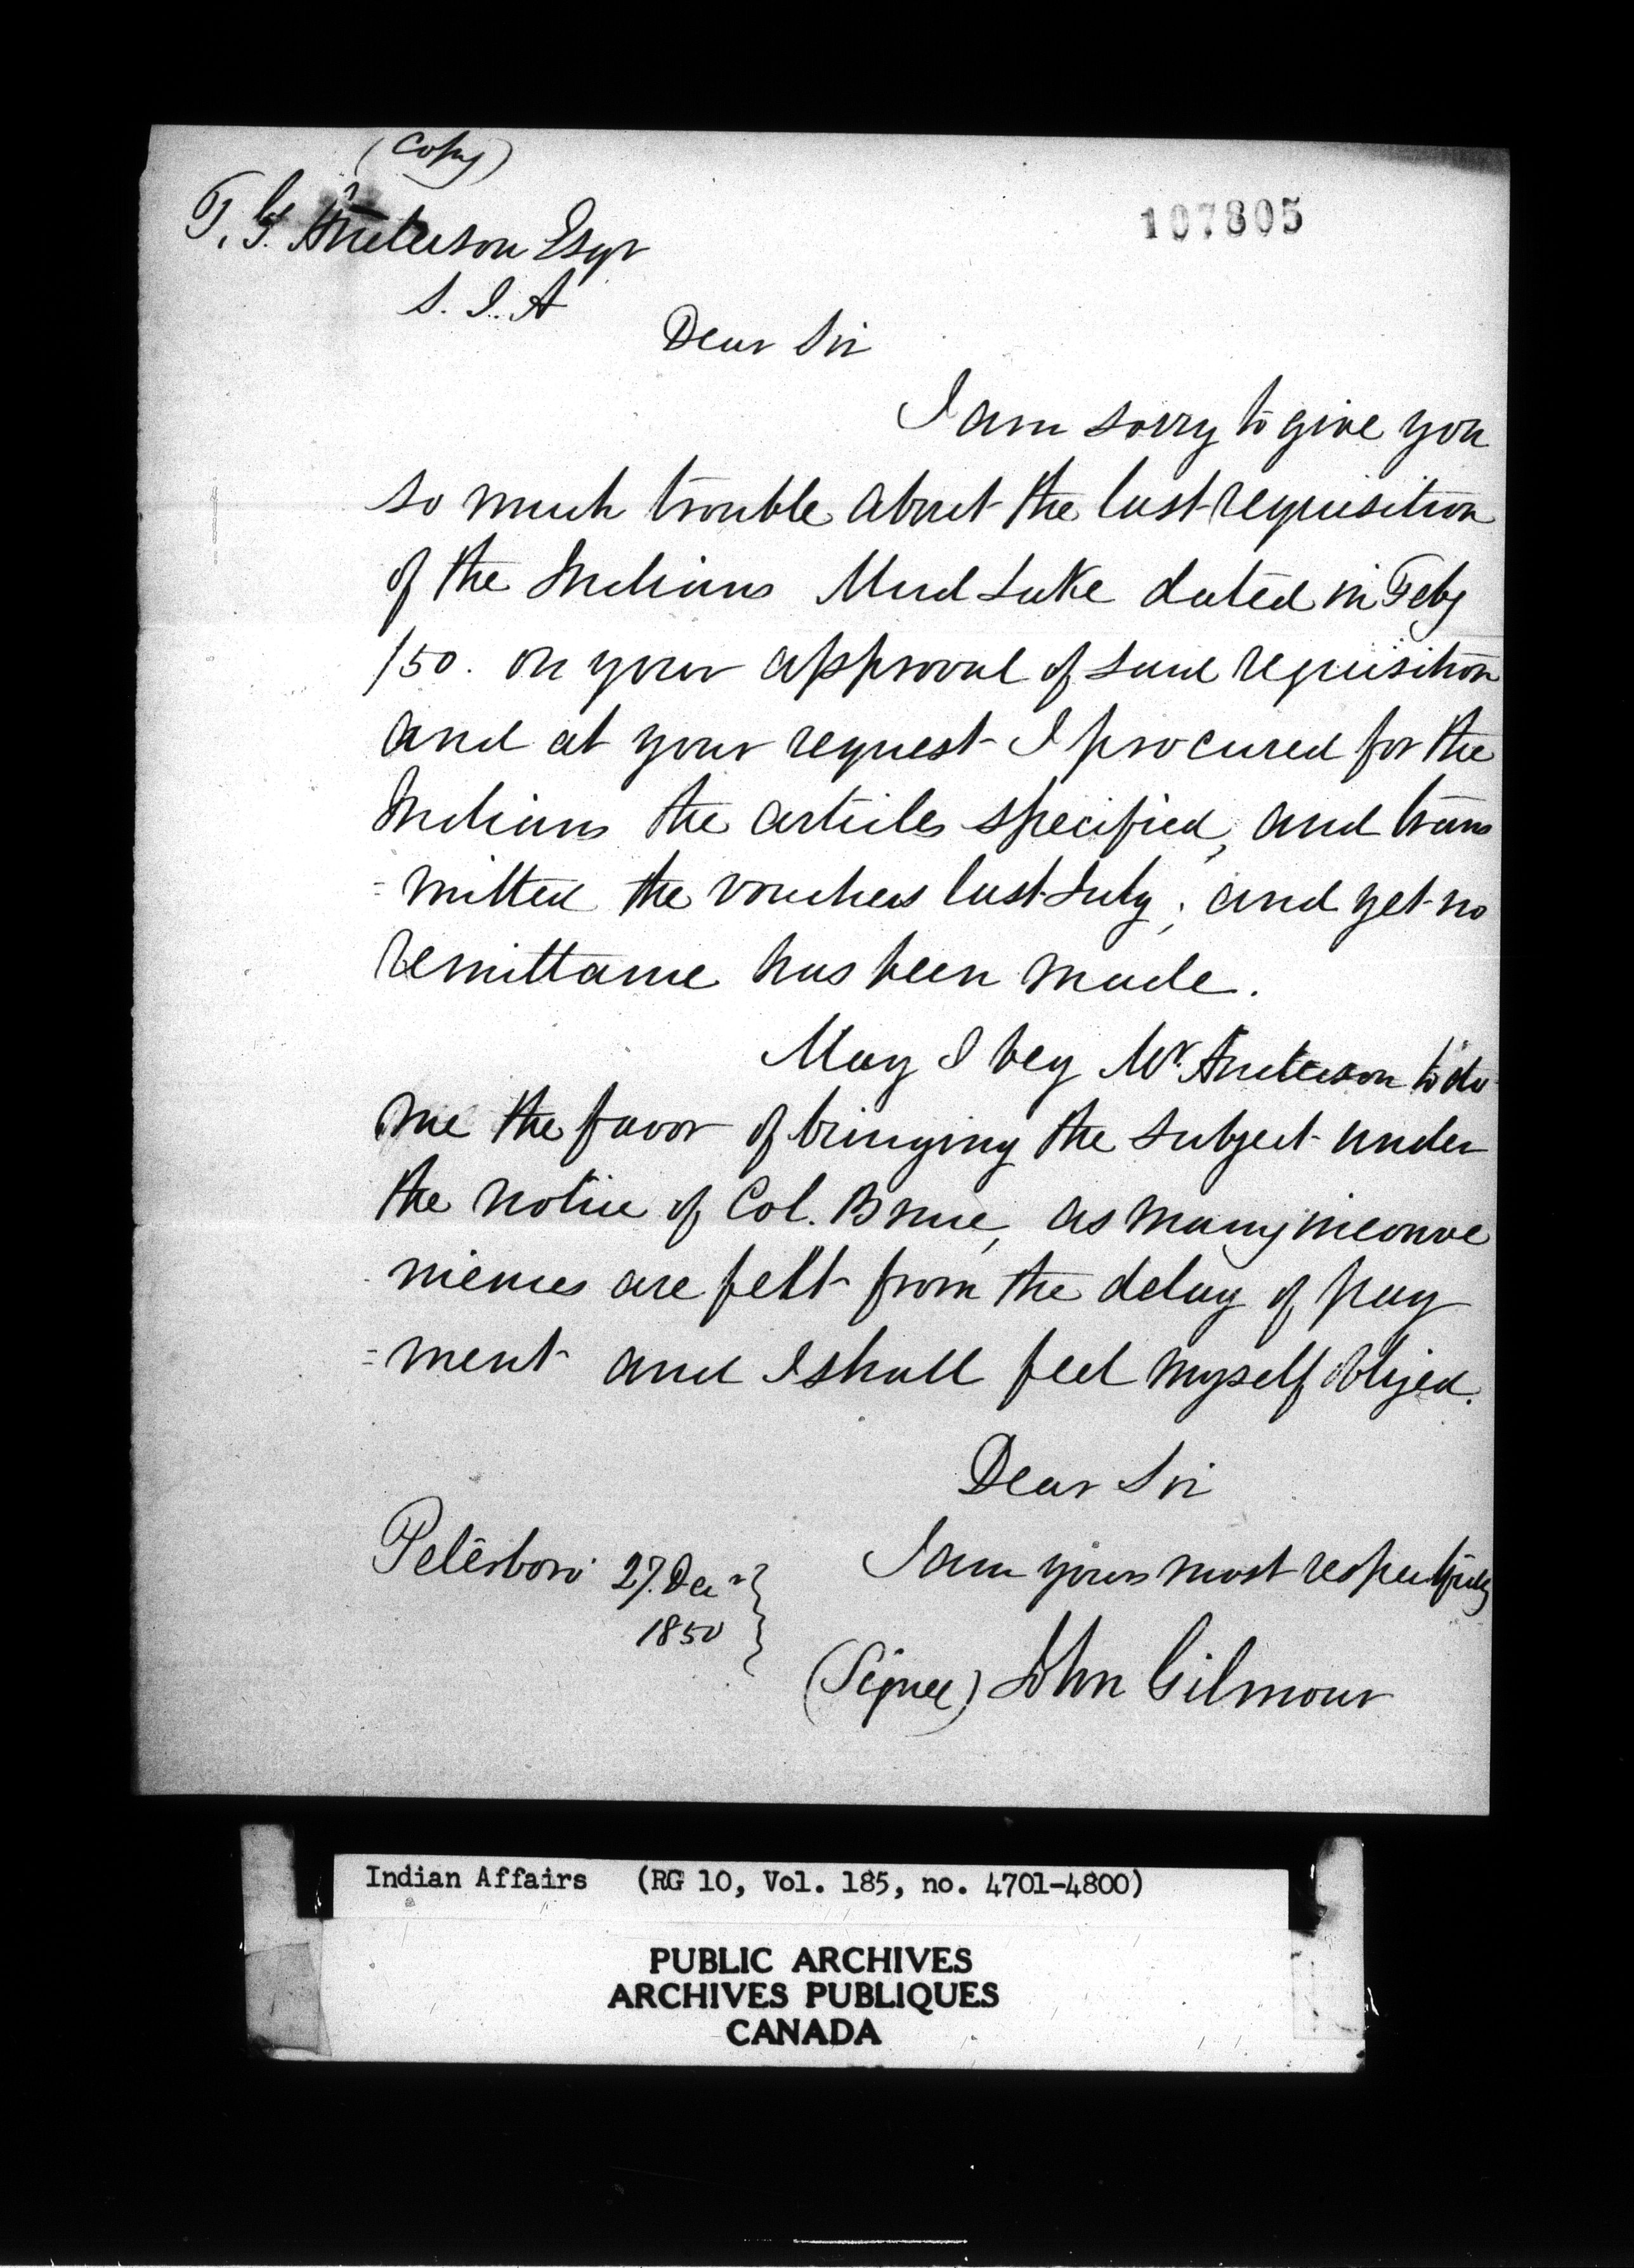 (Copy)
T. G. Anderson Esqr
107805
S. I. A
Dear Sir
I am sorry to give you
so much trouble about the last requisition
of the Indians Mud Lake dated in Feby
/50. on your approval of said requisition
and at your request I procured for the
Indians the articles specified, and trans
=mitted the vouchers last July; and yet no
remittance has been made.
May I beg Mr. Anderson to do
me the favor of bringing the subject under
the notice of Col. Bruce, as many inconve
niences are felt from the delay of pay
=ment and I shall feel myself obliged.
Dear Sir
Peterboro' 27. Decr
I am yours most respectfully
1850
(Signed) John Gilmour
Indian Affairs (RG 10, Vol. 185, no. 4701-4800)
PUBLIC ARCHIVES
ARCHIVES PUBLIQUES
CANADA